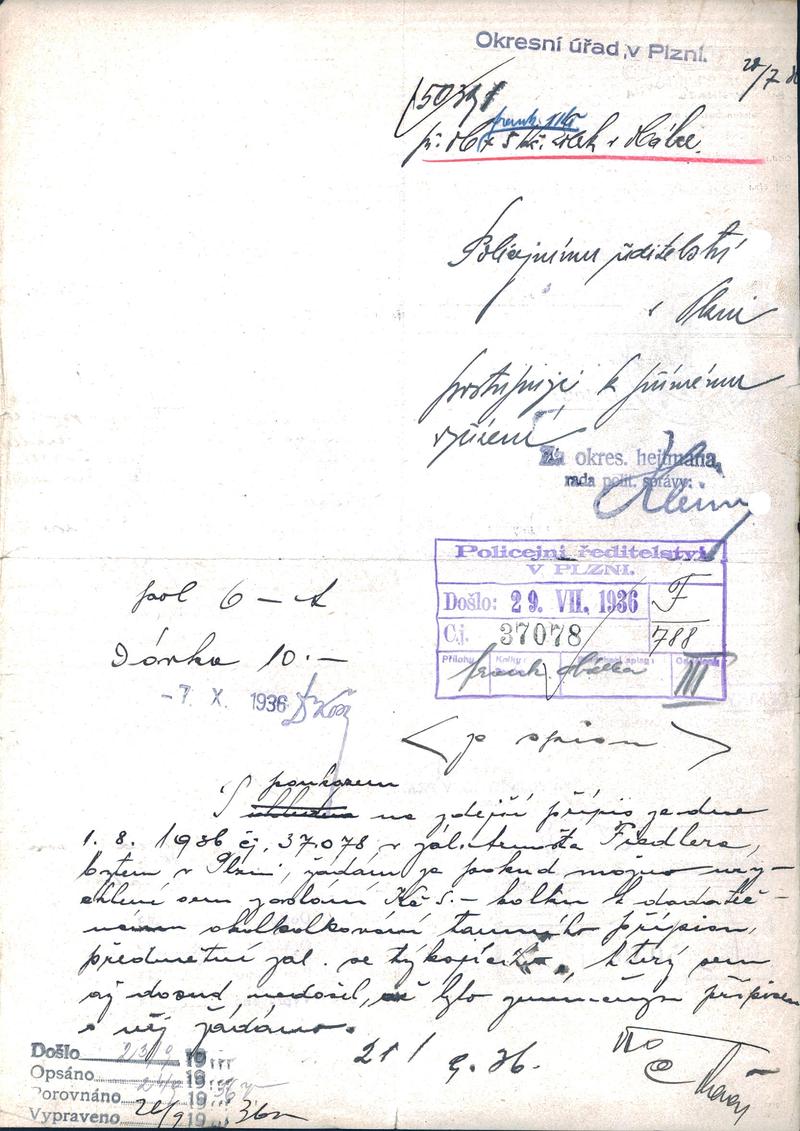 Okresní úřad v Plzni.
28/7 36
5039
př. 5 Kč. kolek v obálce.
Policejnímu ředitelství
v Plzni
postupuji k přímému
vyřízení
Za okres. hejtmana,
rada polit. správy:
Klein
Policejní ředitelství
V PLZNI.
Došlo: 29. VII. 1936 F
Č.j. 37078 788
Přílohy Kolky
frank. obálka III
pol 6 – A
Dávka 10.–
–7. X. 1936
< p spisu >
poukazem
S na zdejší přípis ze dne
1. 8. 1936 čj. 37.078 v zál. Fiedlera,
bytem v Plzni, žádám za pokud možno urych
lené sem zaslání Kč 5.– kolku k dodateč–
okolkování tamního přípisu,
předmětní zál. se týkajícího, který sem
až dosud nedošel, ač bylo přípisem
o něj žádáno.
21/ 9. 36.
Došlo 23/9 19
Opsáno 19
Porovnáno 19
Vypraveno 19 36